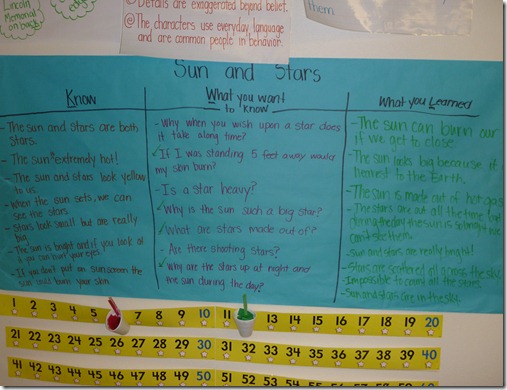 Lincoln
Memorial
on back
@Details are exaggerated beyond belief.
@The characters use everyday language
and are common people in behavior.
them
Sun and Stars
Know
- The sun and stars are both
stars.
- The sun is extremely hot!
- The sun and stars look yellow
to us.
- When the sun sets, we can
see the stars
- Stars look small but are really
big.
- The sun is bright and if you look at
it you can burn your eyes!
- If you don't put on sunscreen the
sun could burn your skin.
What you want
to know
- Why when you wish upon a star does
it take along time?
✓If I was standing 5 feet away would
my skin burn?
- Is a star heavy?
✓Why is the sun such a big star?
✓What are stars made out of?
- Are there shooting stars?
✓Why are the stars up at night and
the sun during the day?
What you Learned
- The sun can burn our
if we get to close
- The sun looks big because it
nearest to the Earth.
- The sun is made out of hot gas
- The stars are out all the time but
during the day the sun is so bright we
can't see them.
- Sun and stars are really bright!
- Stars are scattered all across the sky
- Impossible to count all the stars.
- Sun and stars are in the sky.
1 2 3 4 5 7 8 9 10 11 13 14 15 16 17 18 19 20
21 22 23 24 25 26 27 28 29 30 31 32 33 34 35 36 37 38 39 40
41 42 43 44 45 46 47 48 49 50 51 52 53 54 55 56 57 58 59